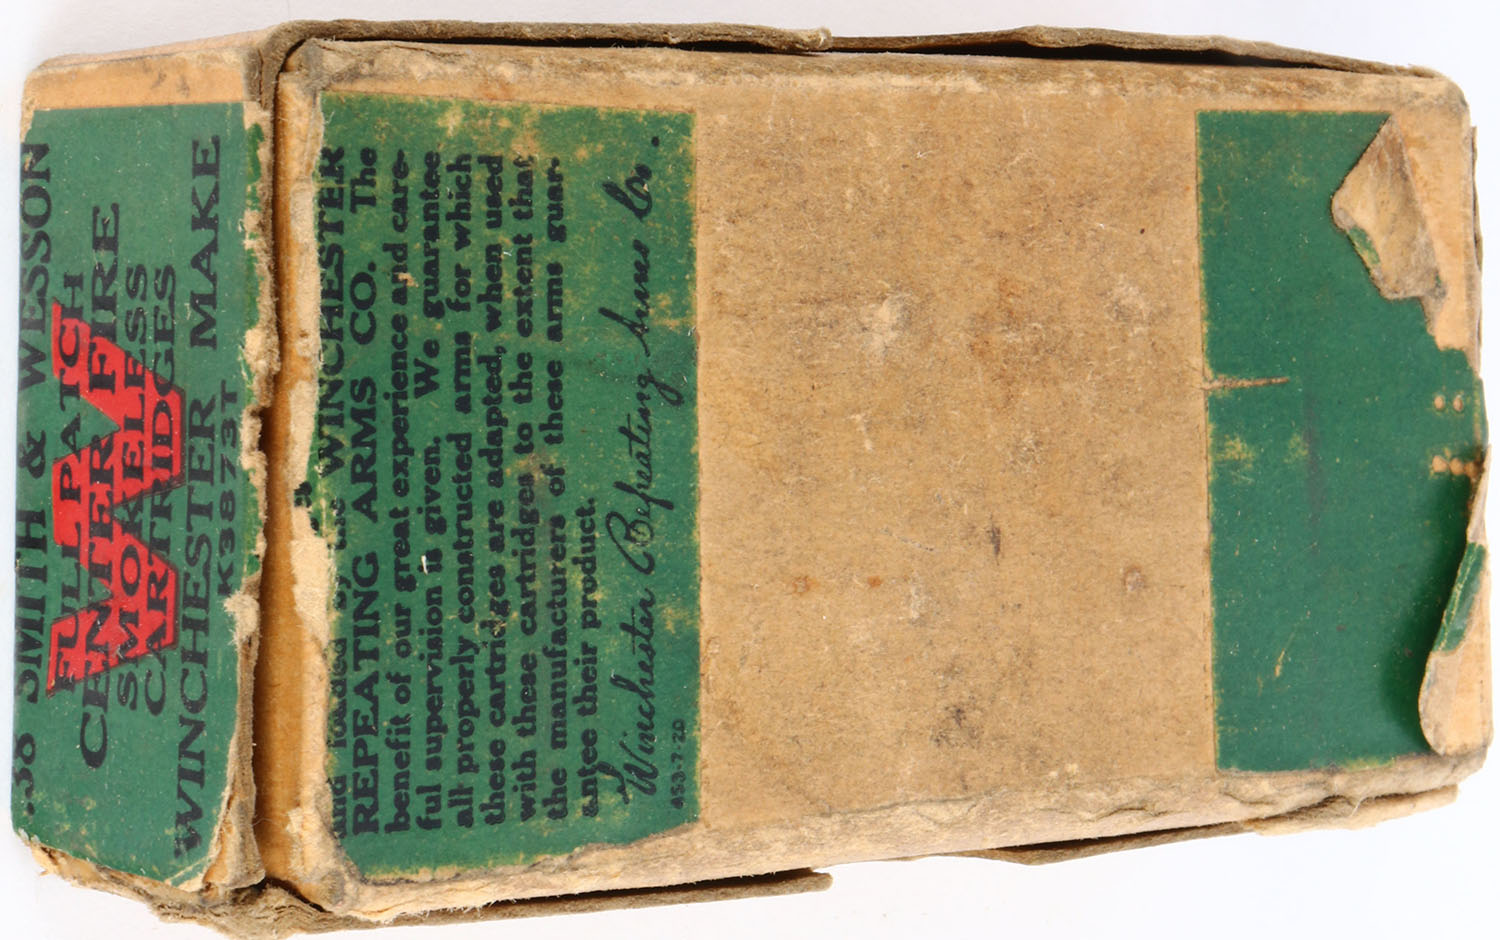 .38 SMITH & WESSON
FULL PATCH
CENTER FIRE
SMOKELESS
CARTRIDGES
WINCHESTER MAKE
K3873T
W
and loaded by the WINCHESTER
REPEATING ARMS CO. The
benefit of our great experience and care-
ful supervision is given. We guarantee
all properly constructed arms for which
these cartridges are adapted, when used
with these cartridges to the extent that
the manufacturers of these arms guar-
antee their product.
Winchester Repeating Arms Co.
453-7-20